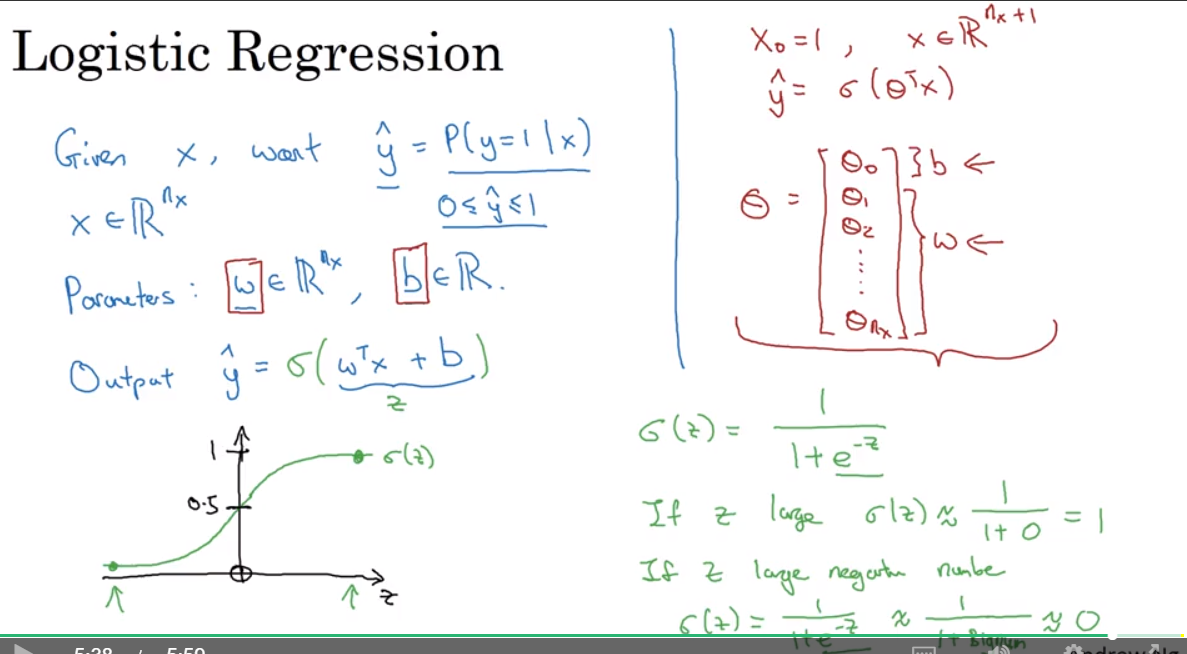 Logistic Regression
Given x, want ŷ = P(y=1|x)
x ∈ ℝⁿˣ
0 ≤ ŷ ≤ 1
Parameters: w ∈ ℝⁿˣ, b ∈ ℝ.
Output ŷ = σ(wᵀx + b)
z
1
σ(z)
0.5
z
x₀ = 1, x ∈ ℝⁿˣ⁺¹
ŷ = σ(θᵀx)
θ = [θ₀ } b ←
θ₁
θ₂
⋮
θₙₓ] } w ←
σ(z) = 1 / (1 + e⁻ᶻ)
If z large σ(z) ≈ 1 / (1 + 0) = 1
If z large negative number
σ(z) = 1 / (1 + e⁻ᶻ) ≈ 1 / (1 + Bignum) ≈ 0
5:28 / 5:59
Andrew Ng